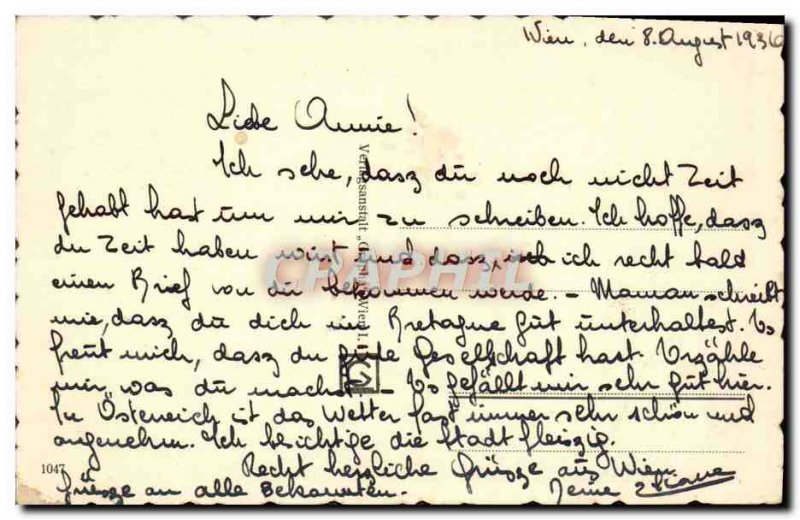 Wien, den 8. August 1936
Liebe Annie!
Ich sehe, dasz du noch nicht Zeit
gehabt hast um mir zu schreiben. Ich hoffe, dasz
du Zeit haben wirst und dasz ich recht bald
einen Brief von dir bekommen werde. - Maman schreibt
mir, dasz du dich in Bretagne gut unterhaltest. Es
freut mich, dasz du gute Gesellschaft hast. Erzähle
mir, was du machst. - Es gefällt mir sehr gut hier.
In Österreich ist das Wetter fast immer sehr schön und
angenehm. Ich besichtige die Stadt fleiszig.
Recht herzliche Grüsze aus Wien.
Grüsze an alle Bekannten.
Deine
1047
Verlagsanstalt
Wien I.
CPAPHIL